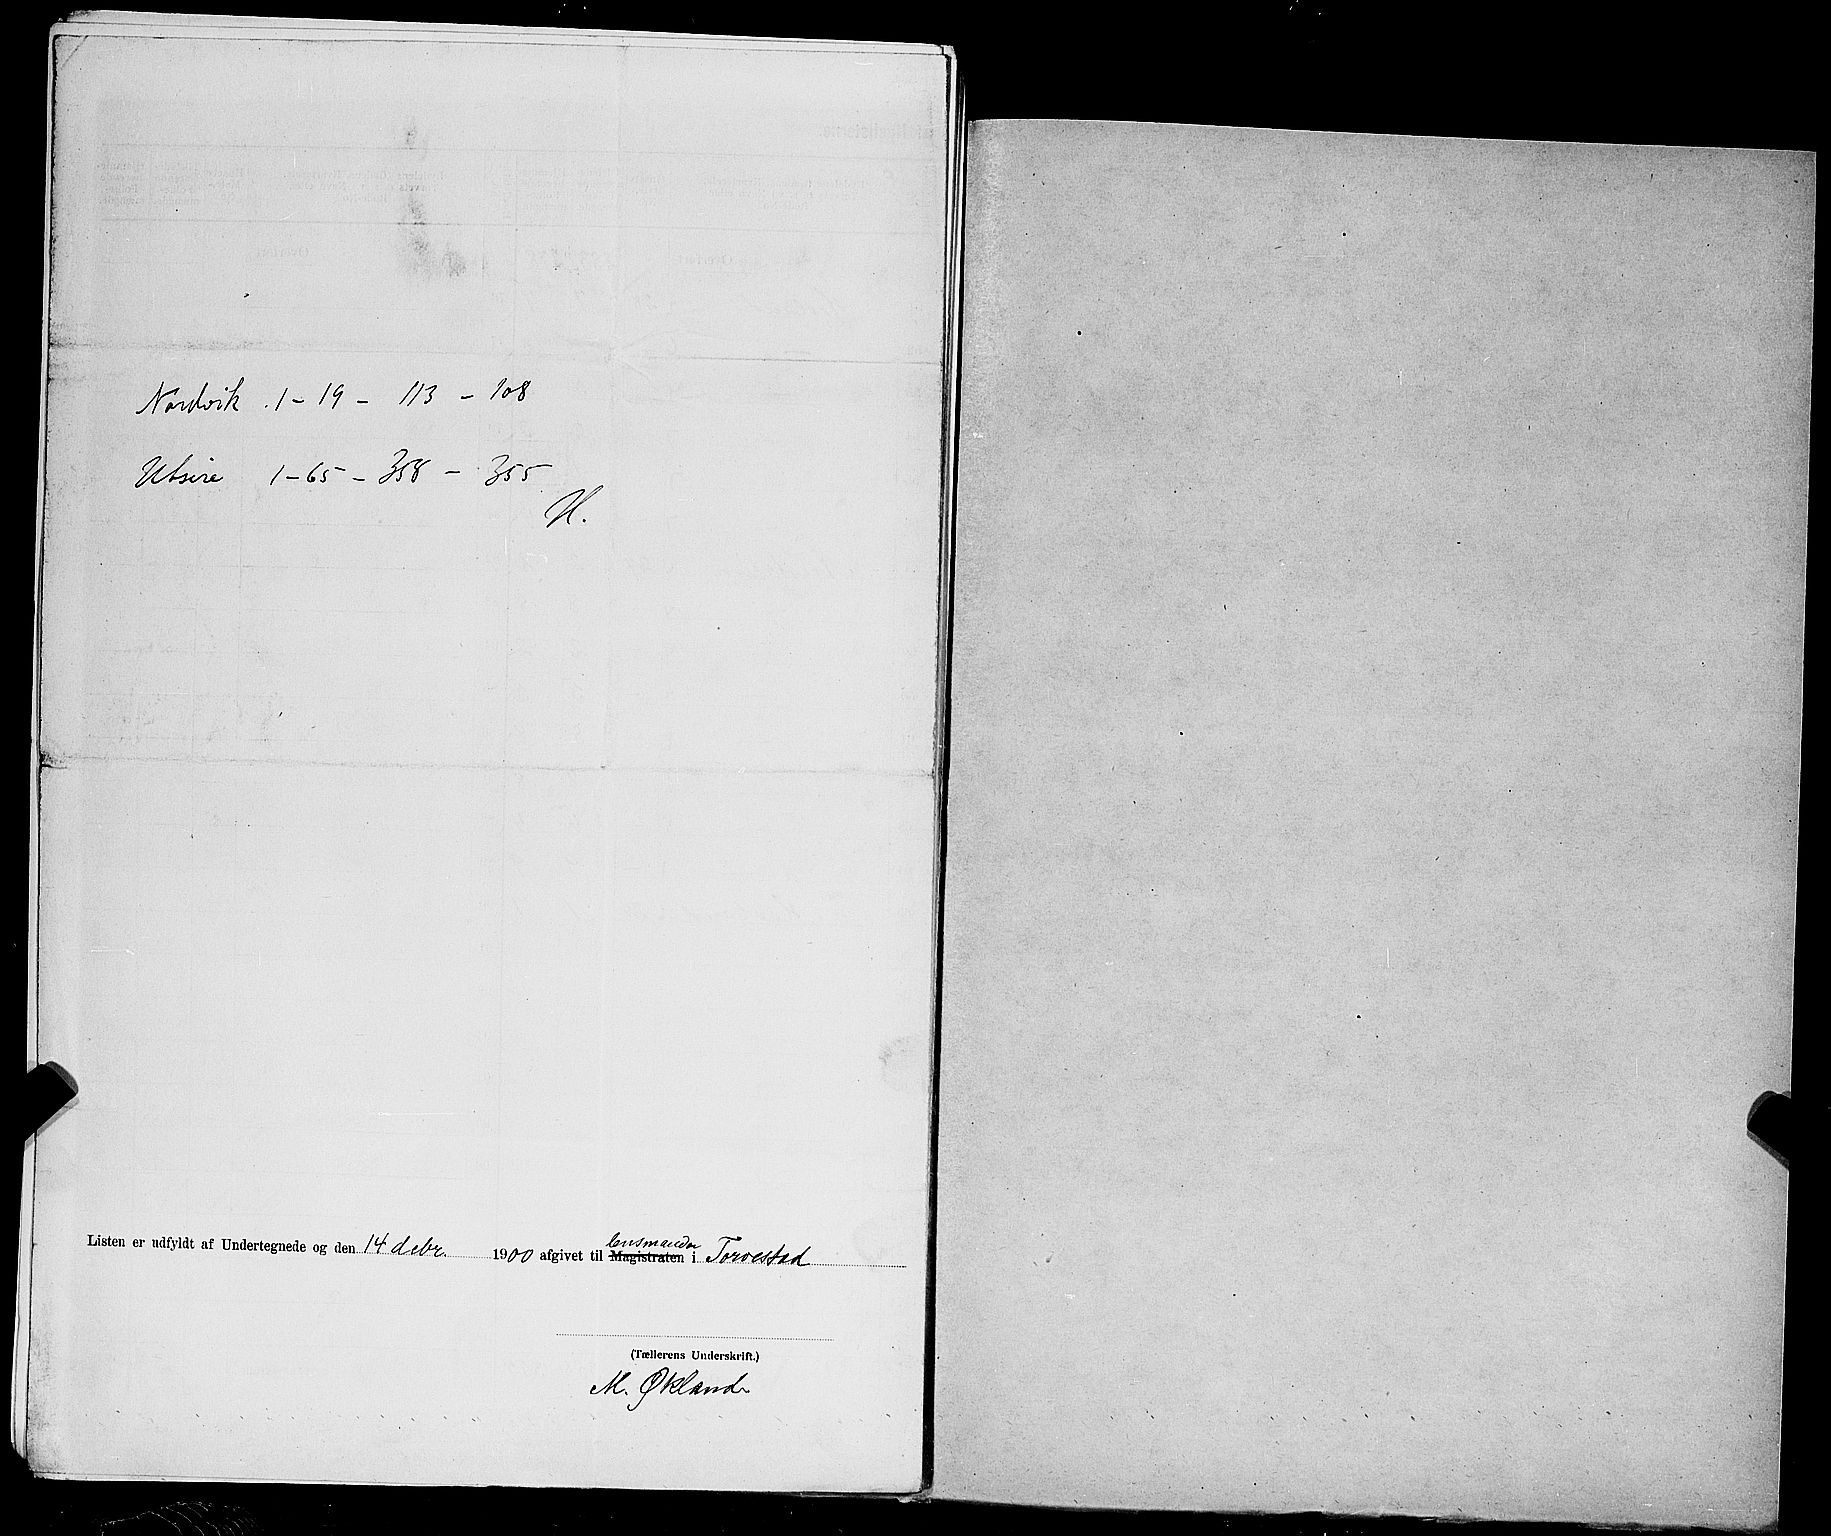 Nordvik 1 - 19 - 113 - 108
Utsire 1 - 65 - 358 - 355
H.
lensmanden
Listen er udfyldt af Undertegnede og den 14 debr. 1900 afgivet til Magistraten i Torvestad
(Tællerens Underskrift.)
M. Økland